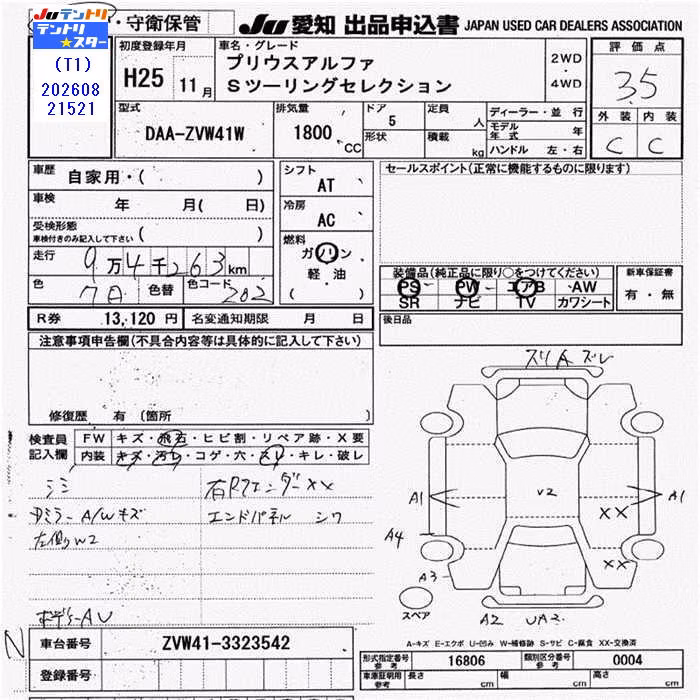 テントリ
テントリ★スター
(T1)
202608
21521
・守衛保管
JU 愛知 出品申込書 JAPAN USED CAR DEALERS ASSOCIATION
初度登録年月
H25 11月
車名・グレード
プリウスアルファ
Sツーリングセレクション
2WD
・
4WD
評価点
3.5
外装 内装
C C
型式
DAA-ZVW41W
排気量
1800 CC
ドア
5
形状
定員
人
積載
kg
ディーラー・並行
モデル年式 年
ハンドル 左・右
車歴
自家用・( )
車検
年 月( 日)
受検形態
車検付きのみ記入して下さい ( )
走行
9万4千263km
色
7A
色替
色コード
202
シフト
AT
冷房
AC
燃料
ガソリン
軽油
( )
セールスポイント(正常に機能するものに限ります)
装備品(純正品に限り○をつけてください)
PS PW エアB AW
SR ナビ TV カワシート
新車保証書
有・無
R券 13,120円 名変通知期限 月 日
後日品
注意事項申告欄(不具合内容等は具体的に記入して下さい)
修復歴 有(箇所
検査員
記入欄
FW キズ・飛石・ヒビ割・リペア跡・X要
内装 キズ・汚れ・コゲ・穴・スレ・キレ・破レ
シミ
右Rフェンダーxx
ミラーA/Wキズ
エンドパネル シワ
左側W2
ボデーAU
スリAズレ
A1
V2
A1
XX
A4
XX
A3
スペア
A2 UA2
A-キズ E-エクボ U-凹み W-補修跡 S-サビ C-腐食 XX-交換済
N
車台番号 ZVW41-3323542
登録番号
形式指定番号
参考
16806
類別区分番号
参考
0004
車庫証明用
参考
長さ cm 幅 cm 高さ cm